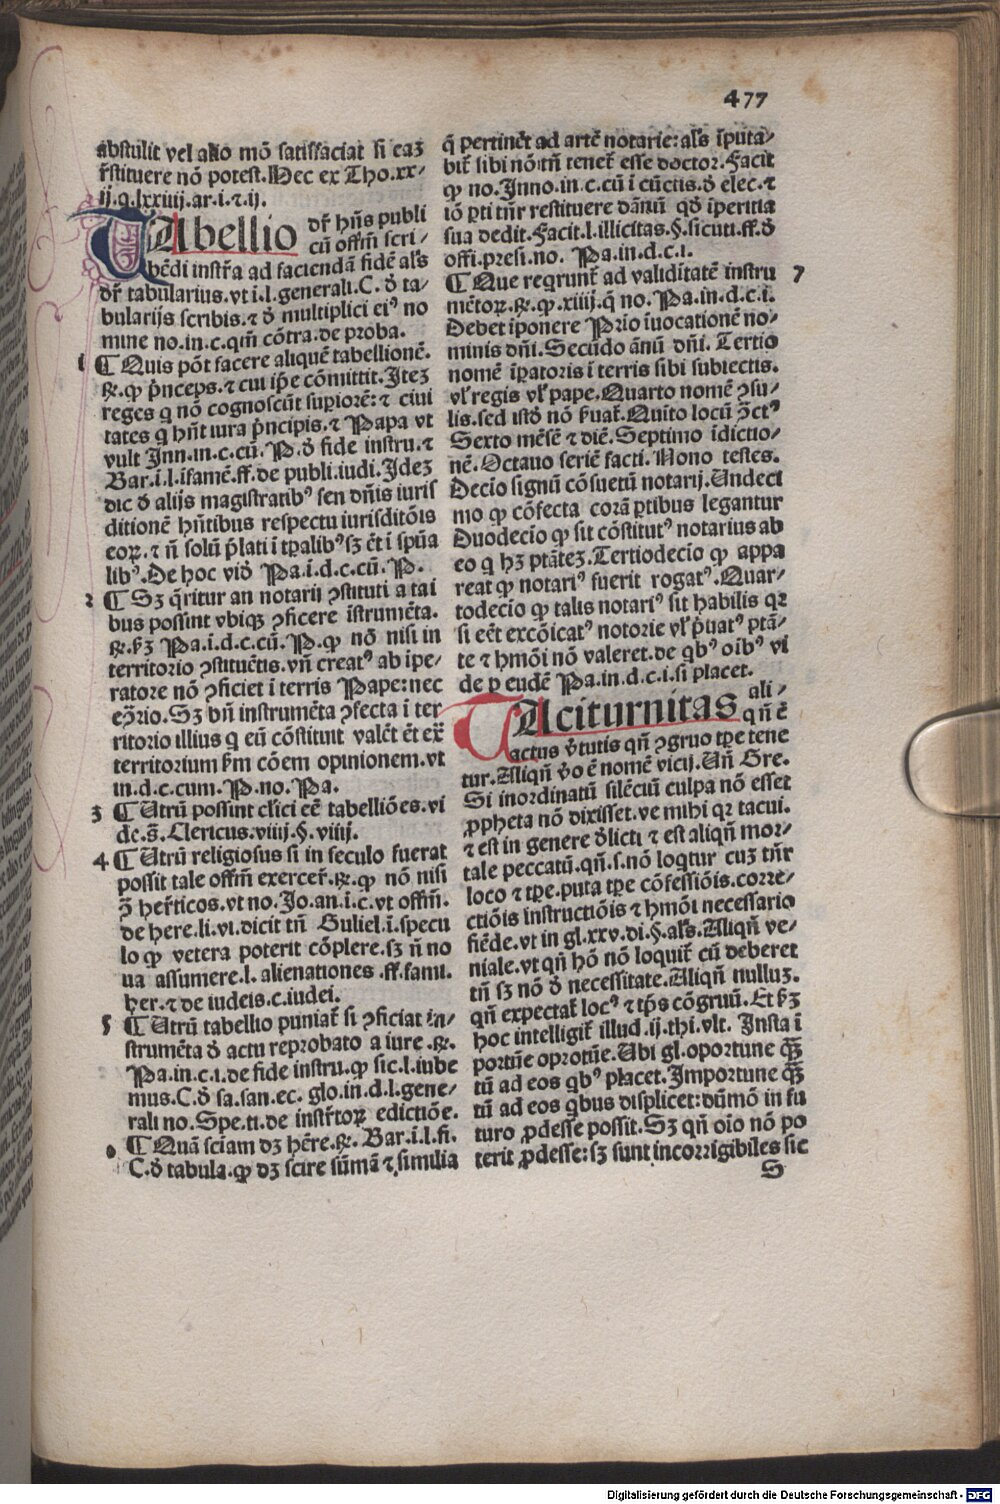 477
abstulit vel alio mō satisfaciat si eaꝫ
r̄stituere nō potest. Hec ex Tho. xx-
ij. q. lxxiiij. ar. i. ⁊ ij.
TAbellio dr̄ hn̄s publi
cū offm̄ scri-
bēdi instr̄a ad faciendā fidē als̄
dr̄ tabularius. vt i. l. generali. C. đ ta-
bularijs scribis. ⁊ đ multiplici eiꝰ no
mine no. in. c. qm̄ cōtra. de proba.
1 ¶ Quis pōt facere aliquē tabellionē.
R̄. ꝙ p̄nceps. ⁊ cui ip̄e cōmittit. Iteꝫ
reges q nō cognoscūt supiorē: ⁊ ciui
tates q hn̄t iura p̄ncipis. ⁊ Papa vt
vult Inn. in. c. cū. P. đ fide instru. ⁊
Bar. i. l. īfamē. ff. de publi. iudi. Ideꝫ
dic đ alijs magistratibꝰ seu dn̄is iuris
ditionē hn̄tibus respectu iurisditōis
eoꝝ. ⁊ n̄ solū p̄lati i tꝑalibꝰ sꝫ ēt i spūa
libꝰ. De hoc vid̄ Pa. i. d. c. cū. P.
2 ¶ Sꝫ q̄ritur an notarij ꝯstituti a tai
bus possint vbiqꝫ ꝯficere īstrumēta.
R̄. ẜꝫ Pa. i. d. c. cū. P. ꝙ nō nisi in
territorio ꝯstituētis. vn̄ creatꝰ ab ipe-
ratore nō ꝯficiet i terris Pape: nec
eꝯ̄rio. Sꝫ bn̄ instrumēta ꝯfecta i ter
ritorio illius q eū cōstituit valēt ēt ex̄
territorium ẜm cōem opinionem. vt
in. d. c. cum. P. no. Pa.
3 ¶ Utrū possint clīci eē tabelliōes. vi
de. s̄. Clericus. viiij. §. viiij.
4 ¶ Utrū religiosus si in seculo fuerat
possit tale offm̄ exercer̄. R̄. ꝙ nō nisi
ꝯ̄ her̄ticos. vt no. Jo. an. i. c. vt offm̄.
de here. li. vi. dicit tn̄ Guliel. i. specu
lo ꝙ vetera poterit cōplere. sꝫ n̄ no
ua assumere. l. alienationes. ff. fami.
her. ⁊ de iudeis. c. iudei.
5 ¶ Utrū tabellio puniat̄ si ꝯficiat in-
strumēta đ actu reprobato a iure. R̄.
Pa. in. c. i. de fide instru. ꝙ sic. l. iube
mus. C. đ sa. san. ec. glo. in. d. l. gene-
rali no. Spe. ti. de instr̄toꝝ edictiōe.
6 ¶ Quā sciam dꝫ hēre. R̄. Bar. i. l. fi.
C. đ tabula. ꝙ dꝫ scire sūmā ⁊ similia
q̄ pertinēt ad artē notarie: als̄ īputa-
bit̄ sibi nō: tn̄ tenet̄ esse doctor. Facit
ꝙ no. Inno. in. c. cū i cūctis. đ elec. ⁊
iō ꝑti tn̄r restituere dānū qđ īperitia
sua dedit. Facit. l. illicitas. §. sicuti. ff. đ
offi. presi. no. Pa. in. d. c. i.
¶ Que reqrunt̄ ad validitatē instru 7
mētoꝝ. R̄. ꝙ. xiiij. q̄ no. Pa. in. d. c. i.
Debet īponere Prio īuocationē no-
minis dn̄i. Secūdo ānū dn̄i. Tertio
nomē īꝑatoris i terris sibi subiectis.
vl̄ regis vl̄ pape. Quarto nomē ꝯsu-
lis. sed istđ nō ẜuat̄. Quīto locū ꝯ̄ctꝰ
Sexto mēsē ⁊ diē. Septimo īdictio-
nē. Octauo seriē facti. Nono testes.
Decīo signū cōsuetū notarij. Undeci
mo ꝙ cōfecta corā ꝑtibus legantur
Duodecīo ꝙ sit cōstitutꝰ notarius ab
eo q hꝫ ptāteꝫ. Tertiodecīo ꝙ appa
reat ꝙ notariꝰ fuerit rogatꝰ. Quar-
todecīo ꝙ talis notariꝰ sit habilis qꝛ
si eēt excōicatꝰ notorie vl̄ p̄uatꝰ ptā-
te ⁊ hmōi nō valeret. de qbꝰ oībꝰ vi
de p eudē Pa. in. d. c. i. si placet.
TAciturnitas ali-
qn̄ ē
actus v̄tutis qn̄ ꝯgruo tꝑe tene
tur. Aliqn̄ v̄o ē nomē vicij. Un̄ Gre.
Si inordinatū silēciū culpa nō esset
ꝓpheta nō dixisset. ve mihi qꝛ tacui.
⁊ est in genere đlicti ⁊ est aliqn̄ mor-
tale peccatū. qn̄. s. nō loqtur cuꝫ tn̄r
loco ⁊ tꝑe. puta tꝑe cōfessiōis. corre-
ctiōis instructiōis ⁊ hmōi necessario
fiēde. vt in gl. xxv. di. §. als̄. Aliqn̄ ve-
niale. vt qn̄ hō nō loquit̄ cū deberet
tn̄ sꝫ nō đ necessitate. Aliqn̄ nulluꝫ.
qn̄ expectat̄ locꝰ ⁊ tp̄s cōgruū. Et ẜꝫ
hoc intelligit̄ illud. ij. thi. vlt. Insta i
portūe oprotūe. Ubi gl. oportune qꝫ̄
tū ad eos qbꝰ placet. Importune qꝫ̄
tū ad eos qbus displicet: dūmō in fu
turo ꝓdesse possit. Sꝫ qn̄ oīo nō po
terit ꝓdesse: sꝫ sunt incorrigibiles sic
S
Digitalisierung gefördert durch die Deutsche Forschungsgemeinschaft - DFG